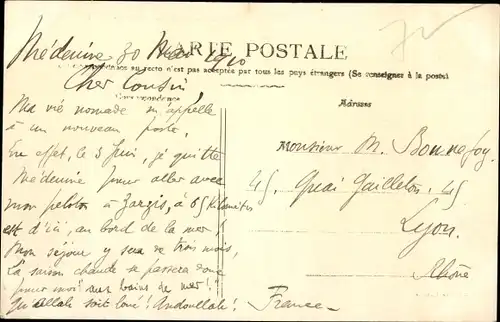 Médenine 30 Mai 1910
CARTE POSTALE
au recto n'est pas acceptée par tous les pays étrangers (Se renseigner à la poste)
Cher Cousin
Correspondance
Adresse
Ma vie nomade m'appelle
à un nouveau poste.
En effet, le 3 Juin, je quitte
Médenine pour aller avec
mon peloton à Zarzis, à 65 Kilomètres
est d'ici, au bord de la mer!
Mon séjour y sera de trois mois,
La saison chaude se passera donc
pour moi! aux bains de mer!!
Qu'Allah soit loué! Amdoullah!
Monsieur M. Bonnefoy
45, Quai Gailleton, 45
Lyon.
Rhône
France